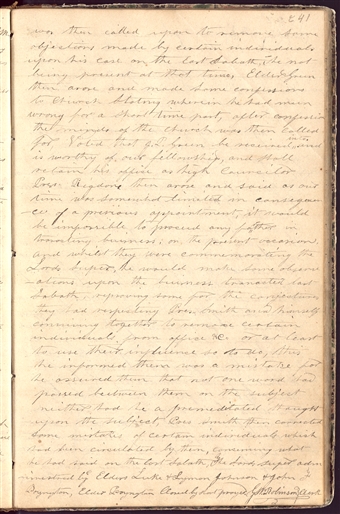 241
was then called upon to remove some
objections made by certain individuals
upon his case on the last Sabath, he not
being present at that time, Elder Green
then arose and made some confessions
to Church stating wherein he had been
wrong for a short time past, after confession
the minds of the Church was then called
for Voted that he be received into
is worthy of our fellowship, and shall
retain his office as high Councilor
Pres. Rigdon then arose and said as our
time was somewhat limited in consequen
ce of a previous appointment, it would
be impossible to proceed any further in
transacting business, on the present occasion
and whilst they were commemorating the
Lords Supper, he would make some observ
ations upon the business transacted last
Sabath, reproving some for the conjectures
they had respecting Pres. Smith and himself
conniving together to remove certain
individuals from office &c. or at least
to use their influence so to do, this
he informed them was a mistake for
he assured them that not one word had
passed between them on the subject
neither had he a premeditated thought
upon the subject, Pres Smith then corrected
some mistakes of certain individuals which
had been circulated by them, concerning what
he had said on the last Sabath, The Lords supper adm
inistered by Elders Luke & Lyman Johnson & John F
Boyington, Elder Boyington Closed by prayer, G W Robinson Clerk